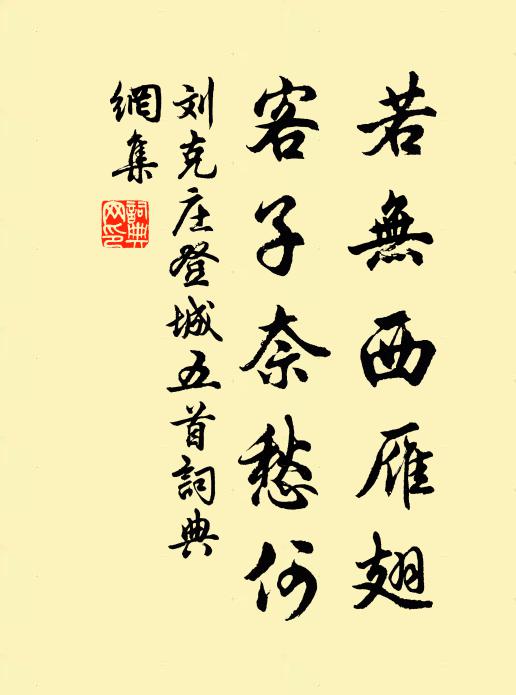 若無西雁翅
客子奈愁何
刘克庄登城五首詞典
網集
詞典
网印